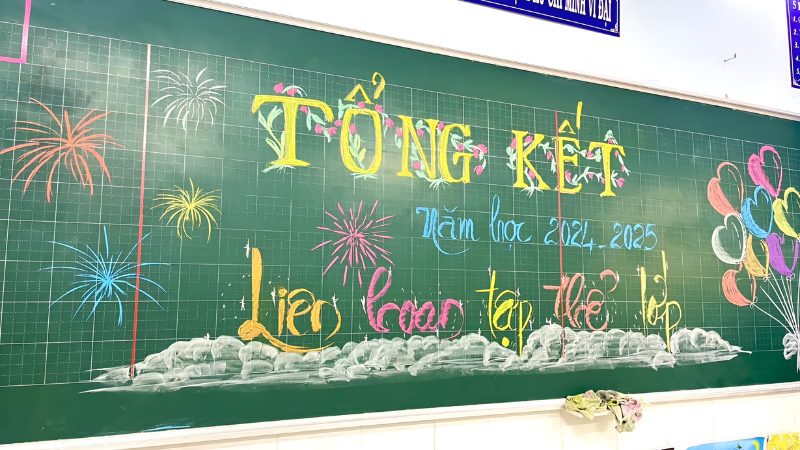 CHÍ MINH VĨ ĐẠI
TỔNG KẾT
Năm học 2024-2025
Liên hoan tập thể lớp